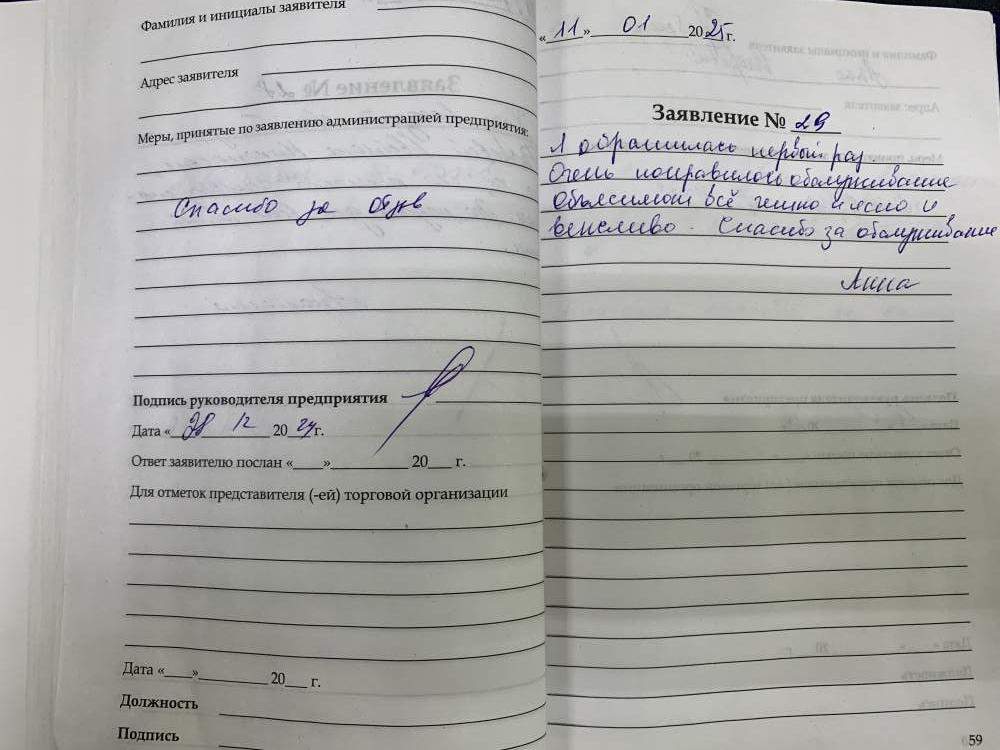 Фамилия и инициалы заявителя
Адрес заявителя
Меры, принятые по заявлению администрацией предприятия:
Спасибо за отзыв
Подпись руководителя предприятия
Дата «28 12 2024г.
Ответ заявителю послан «____»____________ 20___ г.
Для отметок представителя (-ей) торговой организации
Дата «____»__________ 20___ г.
Должность
Подпись
«11» 01 2025г.
Заявление № 29
Я обратилась первый раз
Очень понравилось обслуживание
Объяснили всё чётко и ясно и
вежливо. Спасибо за обслуживание
Анна
59